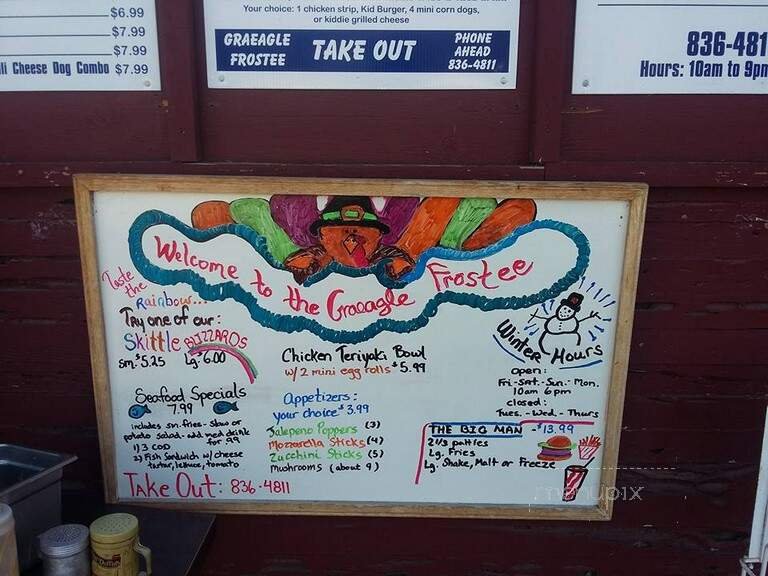 $6.99
$7.99
$7.99
li Cheese Dog Combo $7.99
Your choice: 1 chicken strip, Kid Burger, 4 mini corn dogs,
or kiddie grilled cheese
GRAEAGLE
FROSTEE
TAKE OUT
PHONE
AHEAD
836-4811
836-481
Hours: 10am to 9pm
Welcome to the Graeagle Frostee
Taste
the
Rainbow...
Try one of our:
Skittle BLIZZARDS
sm. $5.25 Lg. $6.00
Seafood Specials
7.99
includes sm. fries - slaw or
potato salad - add med drink
for .99
1) 3 COD
2) Fish Sandwich w/ cheese
tartar, lettuce, tomato
Take Out: 836-4811
Chicken Teriyaki Bowl
w/ 2 mini egg rolls $5.99
Appetizers:
your choice $3.99
Jalepeno Poppers (3)
Mozzarella Sticks (4)
Zucchini Sticks (5)
Mushrooms (about 9)
Winter Hours
open:
Fri.-Sat.-Sun.-Mon.
10am 6pm
closed:
Tues.-Wed.-Thurs
THE BIG MAN - $13.99
2 1/3 patties
Lg. Fries
Lg. Shake, Malt or Freeze
menupix